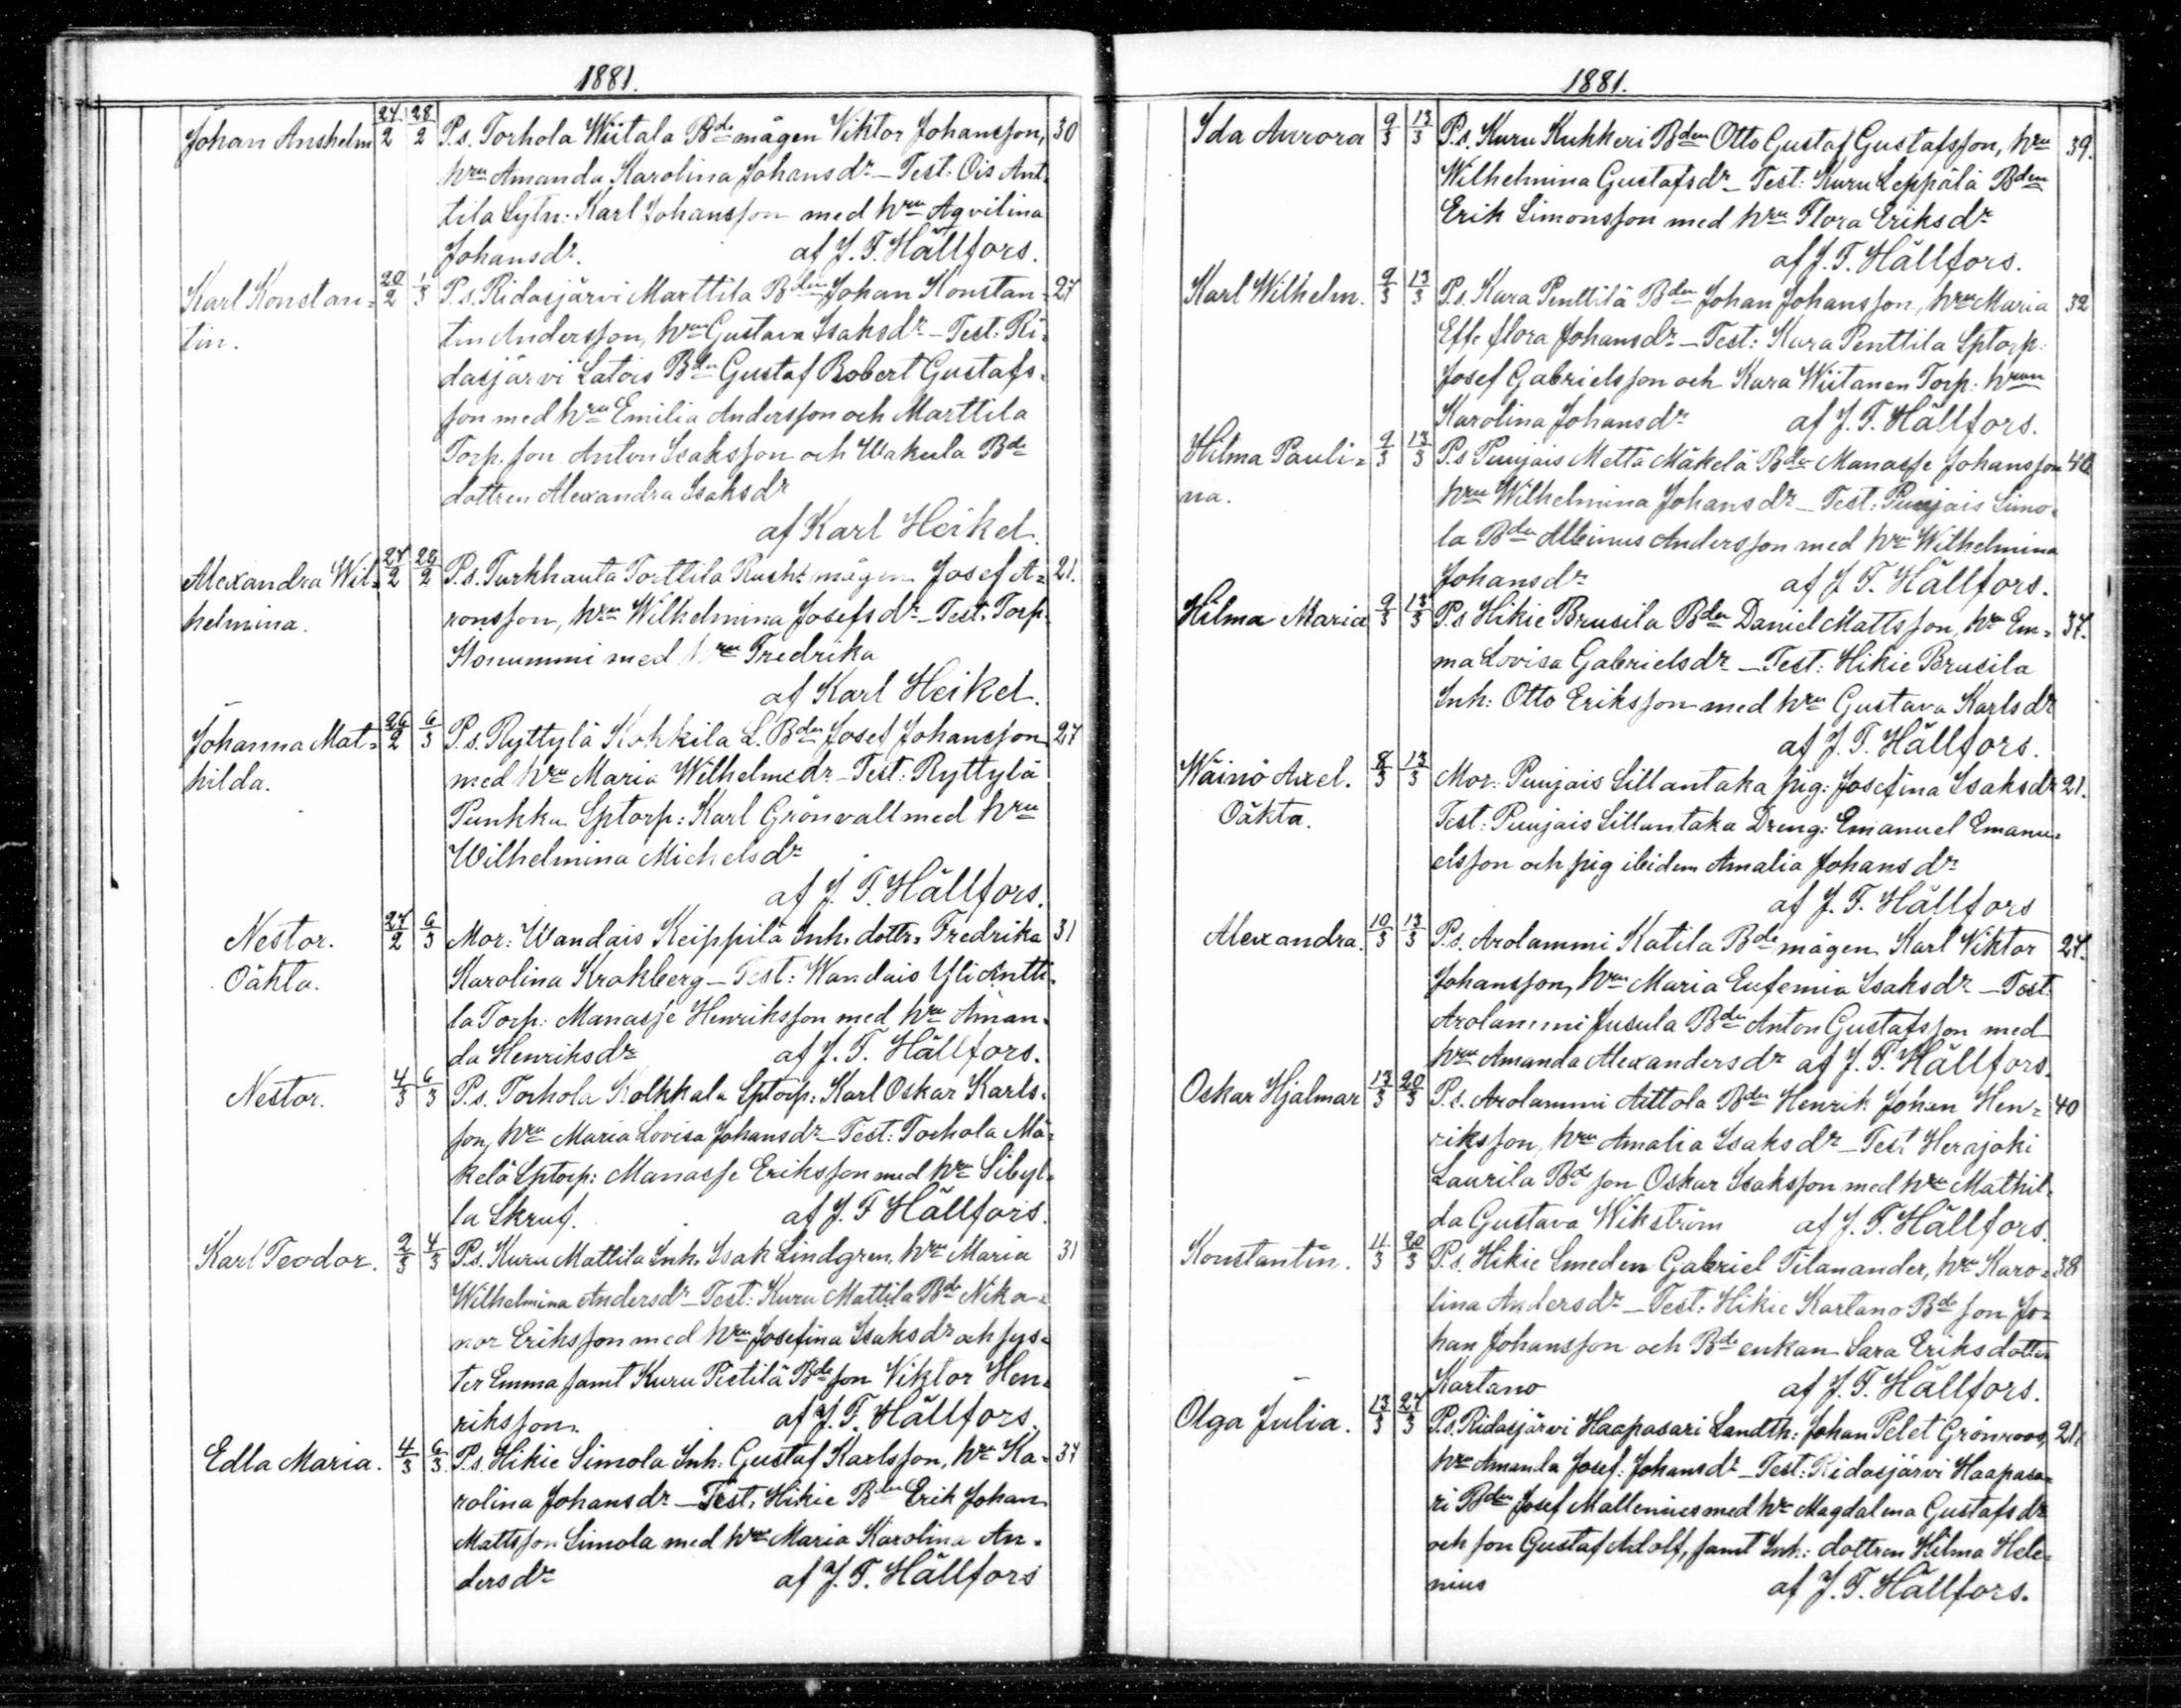 1881.
Johan Anshelm 27/2 28/2 P.s. Torhola Wiitala Bde mågen Viktor Johansson, 30
hru Amanda Karolina Johansdr – Test: Ois Ant-
tila Lytn: Karl Johansson med hru Aqvilina
Johansdr. af J. F. Hällfors.
Karl Konstan= 20/2 1/3 P.s. Ridasjärvi Marttila Bden Johan Konstan= 27
tin. tin Andersson, hru Gustava Isaksdr – Test: Ri-
dasjärvi Latois Bden Gustaf Robert Gustafs-
son med hru Emilia Andersson och Marttila
Torp. son Anton Isaksson och Wakula Bde
dottren Alexandra Isaksdr
af Karl Heikel.
Alexandra Wil= 27/2 28/2 P.s. Turkhauta Torttila Rusth: mågen Josef A= 21.
helmina. ronsson, hru Wilhelmina Josefsdr – Test: Torp.
Honummi med hru Fredrika
af Karl Heikel.
Johanna Mat= 26/2 6/3 P.s. Ryttylä Kokkila L. Bden Josef Johansson 27
hilda. med hru Maria Wilhelmsdr – Test: Ryttylä
Punkka Sptorp: Karl Grönvall med hru
Wilhelmina Michelsdr
af J. F. Hällfors.
Nestor. 27/2 6/3 Mor: Wandais Keippilä Inh. dottr. Fredrika 31
Oäkta. Karolina Krakberg – Test: Wandais Yli Antti-
la Torp: Manasse Henriksson med hru Aman-
da Henriksdr af J. F. Hällfors.
Nestor. 4/3 6/3 P.s. Torhola Kolkkala Sptorp: Karl Oskar Karls-
son, hru Maria Lovisa Johansdr – Test: Torhola Mä-
kelä Sptorp: Manasse Eriksson med hru Sibyl-
la Skruf. af J. F. Hällfors.
Karl Teodor. 2/3 4/3 P.s. Kuru Mattila Inh. Isak Lindgren, hru Maria 31
Wilhelmina Andersdr – Test: Kuru Mattila Bde Nika-
nor Eriksson med hru Josefina Isaksdr och sys-
ter Emma samt Kuru Pietilä Bde son Viktor Hen-
riksson. af J. F. Hällfors.
Edla Maria. 4/3 6/3 P.s. Hikie Simola Inh: Gustaf Karlsson, hru Ka- 37
rolina Johansdr – Test: Hikie Bden Erik Johan
Mattsson Simola med hru Maria Karolina An-
dersdr af J. F. Hällfors
1881.
Ida Aurora 9/3 13/3 P.s. Kuru Kukkeri Bden Otto Gustaf Gustafsson, hru 39.
Wilhelmina Gustafsdr – Test: Kuru Leppälä Bden
Erik Simonsson med hru Flora Eriksdr
af J. F. Hällfors.
Karl Wilhelm. 9/3 13/3 P.s. Kara Penttilä Bden Johan Johansson, hru Maria 32
Effe flora Johansdr – Test: Kara Penttila Sptorp:
Josef Gabrielsson och Kara Wiitanen Torp: hrun
Karolina Johansdr af J. F. Hällfors.
Hilma Pauli= 9/3 13/3 P.s Punjais Mettä Mäkelä Bden Manasse Johansson 40
na. hru Wilhelmina Johansdr – Test: Punjais Simo-
la Bden Albinus Andersson med hru Wilhelmina
Johansdr af J. F. Hällfors.
Hilma Maria 9/3 13/3 P.s Hikie Brusila Bden Daniel Mattsson, hru Em= 37.
ma Lovisa Gabrielsdr – Test: Hikie Brusila
Inh: Otto Eriksson med hru Gustava Karlsdr
af J. F. Hällfors.
Wäinö Axel. 8/3 13/3 Mor: Punjais Sillantaka pig: Josefina Isaksdr 21.
Oäkta. Test: Punjais Sillantaka Dreng: Emanuel Emanu=
elsson och pig ibidem Amalia Johansdr
af J. F. Hällfors
Alexandra. 10/3 13/3 P.s. Arolammi Katila Bde mågen Karl Viktor 27.
Johansson, hru Maria Eufemia Isaksdr – Test.
Arolammi Jusula Bden Anton Gustafsson med
hru Amanda Alexandersdr af J. F. Hällfors.
Oskar Hjalmar 13/3 20/3 P.s. Arolammi Aittola Bden Henrik Johan Hen= 40
riksson, hru Amalia Isaksdr – Test Herajoki
Laurila Bde son Oskar Isaksson med hru Mathil-
da Gustava Wikström af J. F. Hällfors.
Konstantin. 11/3 20/3 P.s. Hikie Smeden Gabriel Tilanander, hru Karo= 38
lina Andersdr – Test: Hikie Kartano Bde son Jo-
han Johansson och Bde enkan Sara Eriksdotter
Kartano af J. F. Hällfors.
Olga Julia. 13/3 27/3 P.s. Ridasjärvi Haapasari Landth: Johan Pelet Grönroos, 21.
hru Amanda Josef: Johansdr – Test: Ridasjärvi Haapasa=
ri Bden Josef Mallenius med hru Magdalena Gustafsdr
och son Gustaf Adolf, samt Inh: dottren Hilma Hele=
nius af J. F. Hällfors.